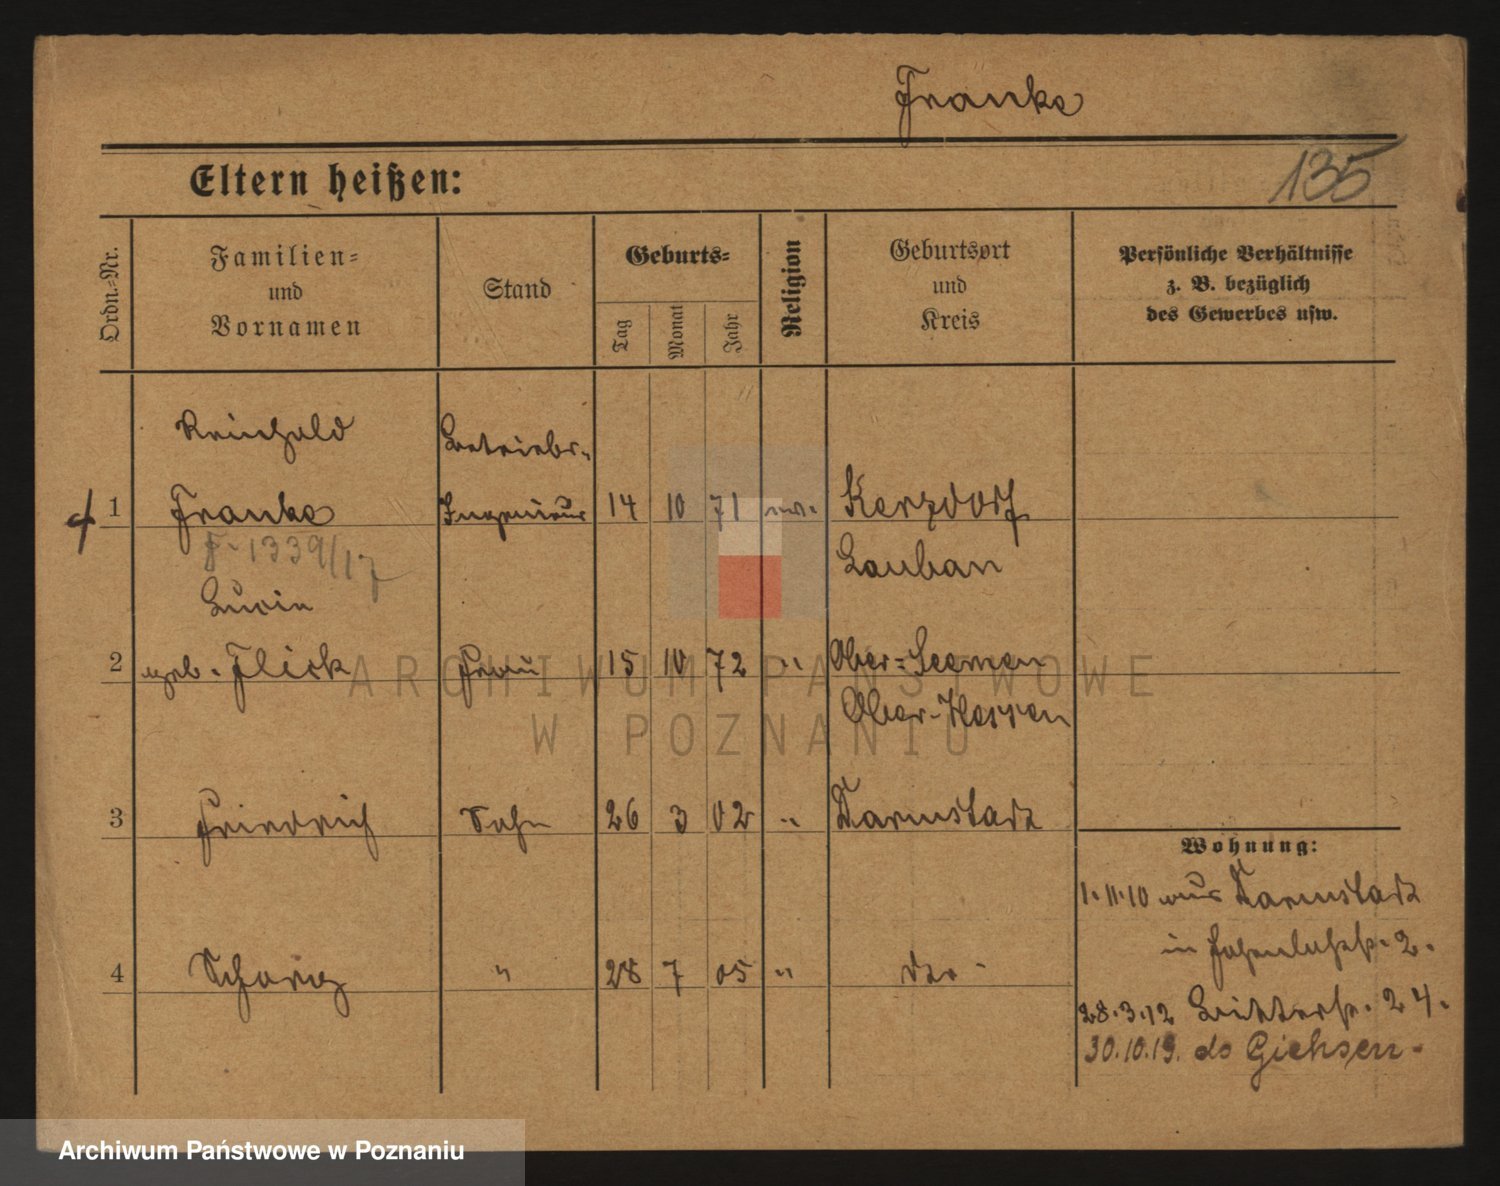 Franke
135
Eltern heißen:
Ordn.-Nr.
Familien-
und
Vornamen
Stand
Geburts-
Tag
Monat
Jahr
Religion
Geburtsort
und
Kreis
Persönliche Verhältnisse
z. B. bezüglich
des Gewerbes usw.
Reinhold
Betriebs-
1 Franke Ingenieur 14 10 71 ev. Kerzdorf
F-1339/17 Lauban
Lucie
2 geb. Flick Frau 15 10 72 " Ober-Seemen
Ober-Hessen
3 Friedrich Sohn 26 3 02 " Darmstadt
4 " 28 7 05 "
Wohnung:
1.11.10 aus Darmstadt
in 2.
28.3.12 24.
30.10.19. do
ARCHIWUM PAŃSTWOWE
W POZNANIU
Archiwum Państwowe w Poznaniu